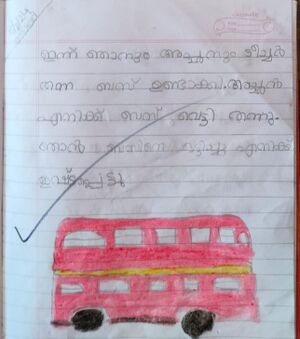 ഇന്ന് ഞാനും അച്ഛനും ടീച്ചർ
തന്ന ബസ് ഉണ്ടാക്കി. അച്ഛൻ
എനിക്ക് ബസ് വെട്ടി തന്നു.
ഞാൻ ബസിനെ ഒട്ടിച്ചു എനിക്ക്
ഇഷ്ടപ്പെട്ടു